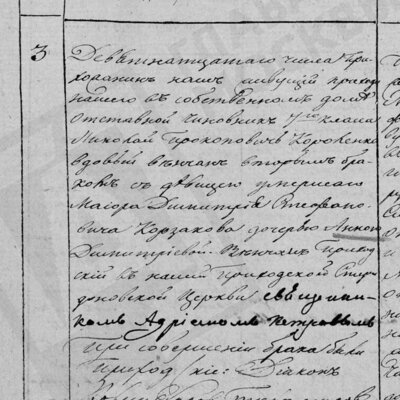 3
Девятнатцатаго числа При-
хожанинъ нашъ живущій прихода
нашего въ собственномъ домѣ
отставной Чиновникъ 7го класа
Николай Прокоповичъ Короженко
вдовый вѣнчанъ вторымъ бра-
комъ съ дѣвицею умершаго
Маiора Димитрія Стефано-
вича Корзакова дочерью Анною
Димитріевой. Вѣнчанъ Приход-
скій въ нашей приходской
Церкви священни-
комъ Адріаномъ Петровымъ
При совершеніи брака были
Приход/скіе: Діаконъ